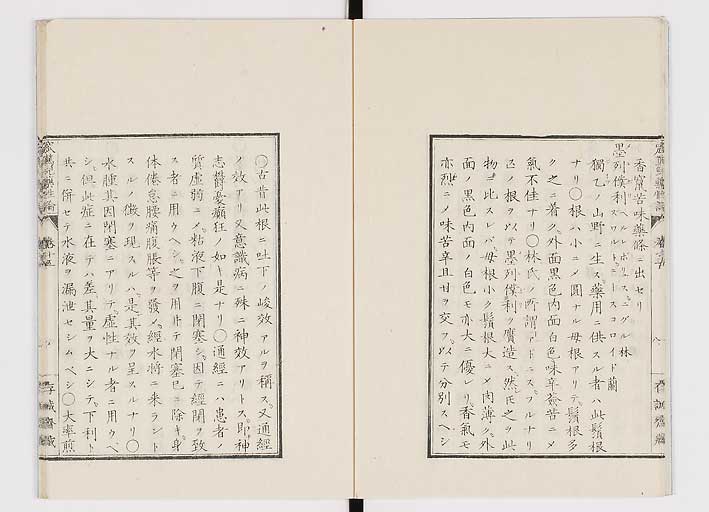 香竄苦味藥條ニ出セリ
墨列僕利 ヘルレボリュス、ニグル 林 ズワルト、ニースコロイド 蘭
獨乙ノ山野ニ生ス藥用ニ供スル者ハ此鬚根
ナリ〇根ハ小ニメ圓ナル母根アリテ鬚根多
ク之ニ着ク外面黒色内面白色味辛苦ニメ
氣不佳ナリ〇林氏ノ所謂アドニスプルナリ
ス根ヲ以テ墨列僕利ク贋造ス然モ之ヲ此
物ニ比スレバ母根小ク鬚根大ニメ肉薄ク外
面ノ黒色内面ノ白色モ亦大ニ優レリ香氣モ
亦烈ニメ味苦辛且甘ヲ交フ以テ分別スヘシ
〇古昔此根ニ吐下ノ峻效アルヲ稱ス又通經
ノ效アリ又意識病ニ殊ニ神效アリトス即神
志欝憂癲狂ノ如キ是ナリ〇通經ニハ患者ノ
質虚弱ニメ粘液下腹ニ閉塞シ因テ經閉ヲ致
ス者ニ用ウヘシ之ヲ用井テ閉塞已ニ除キ身
体倦怠腰痛腹脹等ヲ發メ經水將ニ来ラント
スルノ徴ヲ現スルハ是其效ヲ呈スルナリ〇
水腫其因閉塞ニアリテ虚性ナル者ニ用ウベ
シ但此症ニ在テハ差其量ヲ大ニシテ下利ト
共ニ併セテ水液ヲ漏泄セシムベシ〇大率煎